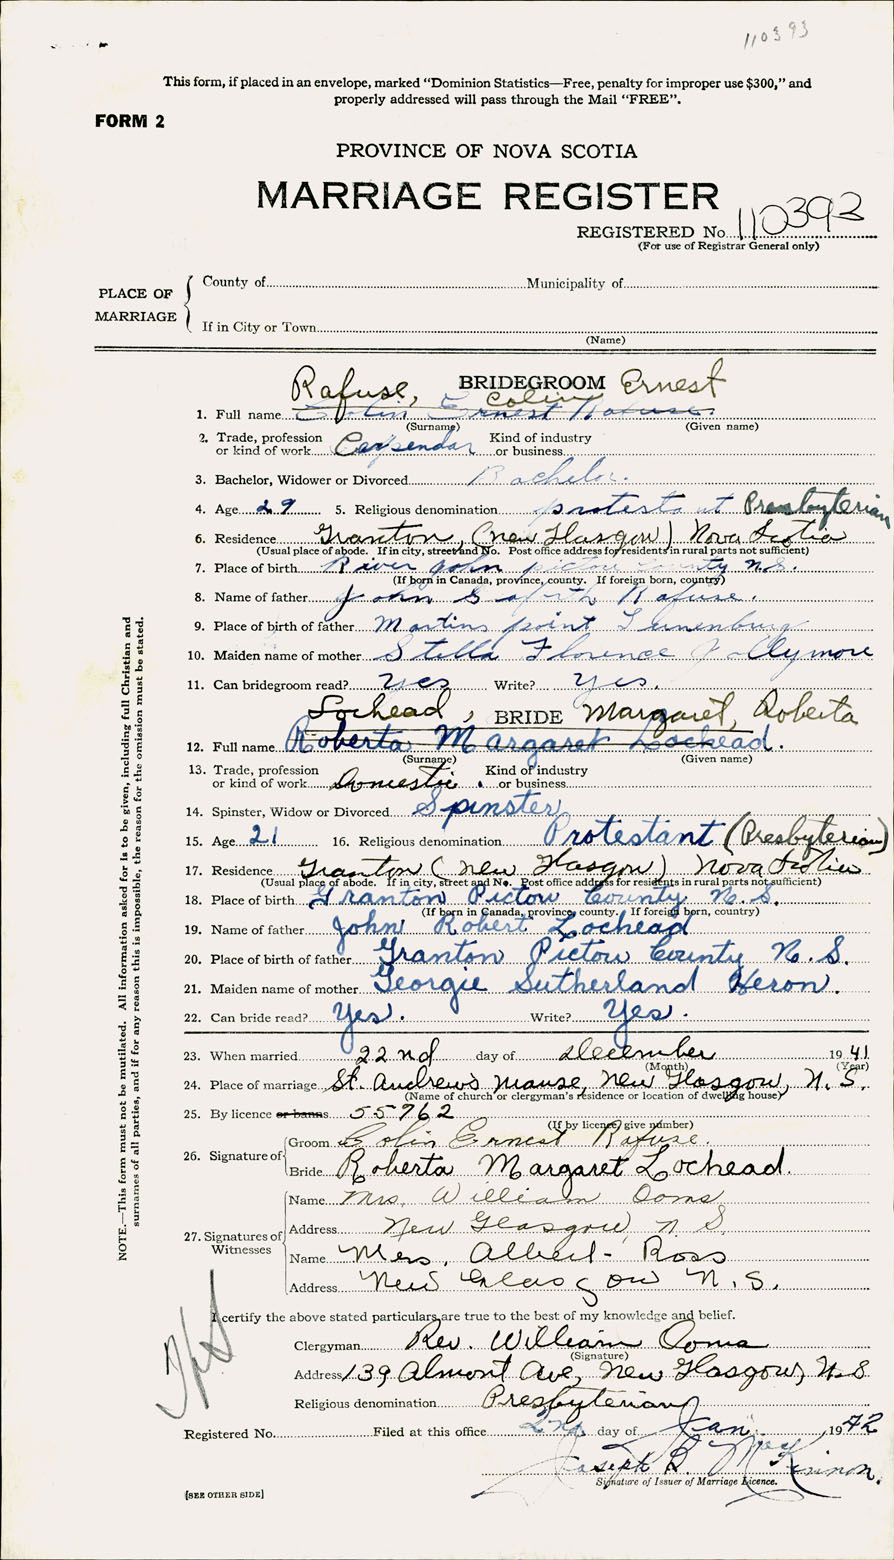 110393
This form, if placed in an envelope, marked “Dominion Statistics—Free, penalty for improper use $300,” and
properly addressed will pass through the Mail “FREE”.
FORM 2
PROVINCE OF NOVA SCOTIA
MARRIAGE REGISTER
REGISTERED No. 110393
(For use of Registrar General only)
PLACE OF MARRIAGE
County of Municipality of
If in City or Town
(Name)
BRIDEGROOM
Rafuse, Colin Ernest
1. Full name Colin Ernest Rafuse.
(Surname) (Given name)
2. Trade, profession or kind of work Carpendar Kind of industry or business
3. Bachelor, Widower or Divorced Bachelor.
4. Age 29 5. Religious denomination protestant Presbyterian
6. Residence Granton, (New Glasgow) Nova Scotia
(Usual place of abode. If in city, street and No. Post office address for residents in rural parts not sufficient)
7. Place of birth River John pictou county N.S.
(If born in Canada, province, county. If foreign born, country)
8. Name of father John Rafuse.
9. Place of birth of father Martins point Lunenburg
10. Maiden name of mother Stella Florence Jollymore
11. Can bridegroom read? yes Write? yes.
BRIDE
Lochead, Margaret, Roberta
12. Full name Roberta Margaret Lochead.
(Surname) (Given name)
13. Trade, profession or kind of work Domestic. Kind of industry or business
14. Spinster, Widow or Divorced Spinster
15. Age 21 16. Religious denomination Protestant (Presbyterian)
17. Residence Granton (New Glasgow) Nova Scotia
(Usual place of abode. If in city, street and No. Post office address for residents in rural parts not sufficient)
18. Place of birth Granton Pictou County N.S.
(If born in Canada, province, county. If foreign born, country)
19. Name of father John Robert Lochead
20. Place of birth of father Granton Pictou County N.S.
21. Maiden name of mother Georgie Sutherland Heron.
22. Can bride read? Yes. Write? Yes.
23. When married 22nd day of December 1941
(Month) (Year)
24. Place of marriage St. Andrew's Manse, New Glasgow, N.S.
(Name of church or clergyman's residence or location of dwelling house)
25. By licence or banns 55762
(If by licence, give number)
26. Signature of
Groom Colin Ernest Rafuse.
Bride Roberta Margaret Lochead.
27. Signatures of Witnesses
Name Mrs. William Ooms
Address New Glasgow, N.S.
Name Mrs. Albert Ross
Address New Glasgow N.S.
I certify the above stated particulars are true to the best of my knowledge and belief.
Clergyman Rev. William Ooms
(Signature)
Address 139 Almont Ave, New Glasgow, N.S
Religious denomination Presbyterian
Registered No. Filed at this office 2nd day of Jan. 1942
Joseph B. McKinnon.
Signature of Issuer of Marriage Licence.
[SEE OTHER SIDE]
NOTE.—This form must not be mutilated. All information asked for is to be given, including full Christian and
surnames of all parties, and if for any reason this is impossible, the reason for the omission must be stated.